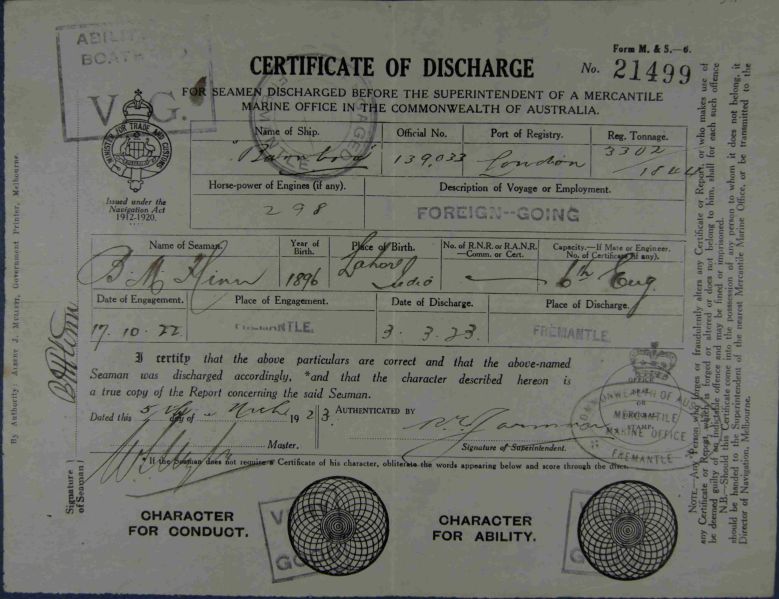 Form M. & S.—6.
ABILITY
V.G.
CERTIFICATE OF DISCHARGE
No. 21499
FOR SEAMEN DISCHARGED BEFORE THE SUPERINTENDENT OF A MERCANTILE
MARINE OFFICE IN THE COMMONWEALTH OF AUSTRALIA.
MINISTER FOR TRADE AND CUSTOMS
Issued under the
Navigation Act
1912-1920.
Name of Ship. Official No. Port of Registry. Reg. Tonnage.
139,033 London 3302
1844
Horse-power of Engines (if any). Description of Voyage or Employment.
298 FOREIGN--GOING
Name of Seaman. Year of Birth. Place of Birth. No. of R.N.R. or R.A.N.R. Comm. or Cert. Capacity.—If Mate or Engineer. No. of Certificate (if any).
B. M. 1896 Lahore India 6th Eng
Date of Engagement. Place of Engagement. Date of Discharge. Place of Discharge.
17. 10. 22 FREMANTLE. 3. 3. 23 FREMANTLE
I certify that the above particulars are correct and that the above-named
Seaman was discharged accordingly, *and that the character described hereon is
a true copy of the Report concerning the said Seaman.
Dated this 5 day of 1923. AUTHENTICATED BY
Master. Signature of Superintendent.
* If the Seaman does not require a Certificate of his character, obliterate the words appearing below and score through the discs.
COMMONWEALTH OF AUST
OFFICE
SEAL
OR
STAMP.
MERCANTILE
MARINE OFFICE
FREMANTLE
Signature
of Seaman
CHARACTER
FOR CONDUCT.
V
GO
CHARACTER
FOR ABILITY.
V
G
By Authority: ALBERT J. MULLETT, Government Printer, Melbourne.
NOTE.—Any Person who forges or fraudulently alters any Certificate or Report, or who makes use of
any Certificate or Report which is forged or altered or does not belong to him, shall for each such offence
be deemed guilty of an indictable offence and may be fined or imprisoned.
N.B.—Should this Certificate come into the possession of any person to whom it does not belong, it
should be handed to the Superintendent of the nearest Mercantile Marine Office, or be transmitted to the
Director of Navigation, Melbourne.